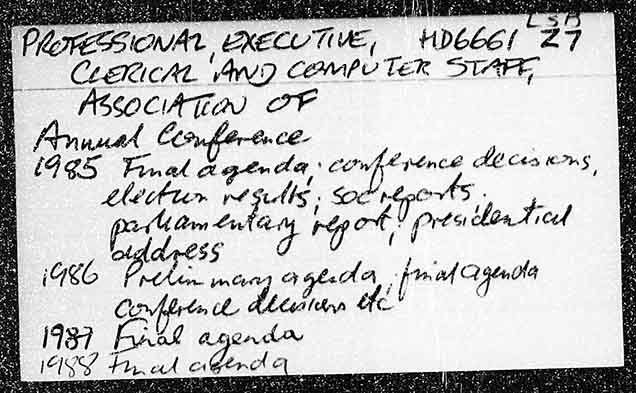 LSB
PROFESSIONAL, EXECUTIVE, HD6661 Z7
CLERICAL AND COMPUTER STAFF,
ASSOCIATION OF
Annual Conference
1985 Final agenda; conference decisions,
election results; soc reports;
parliamentary report; presidential
address
1986 Preliminary agenda; final agenda
conference decisions etc
1987 Final agenda
1988 Final agenda